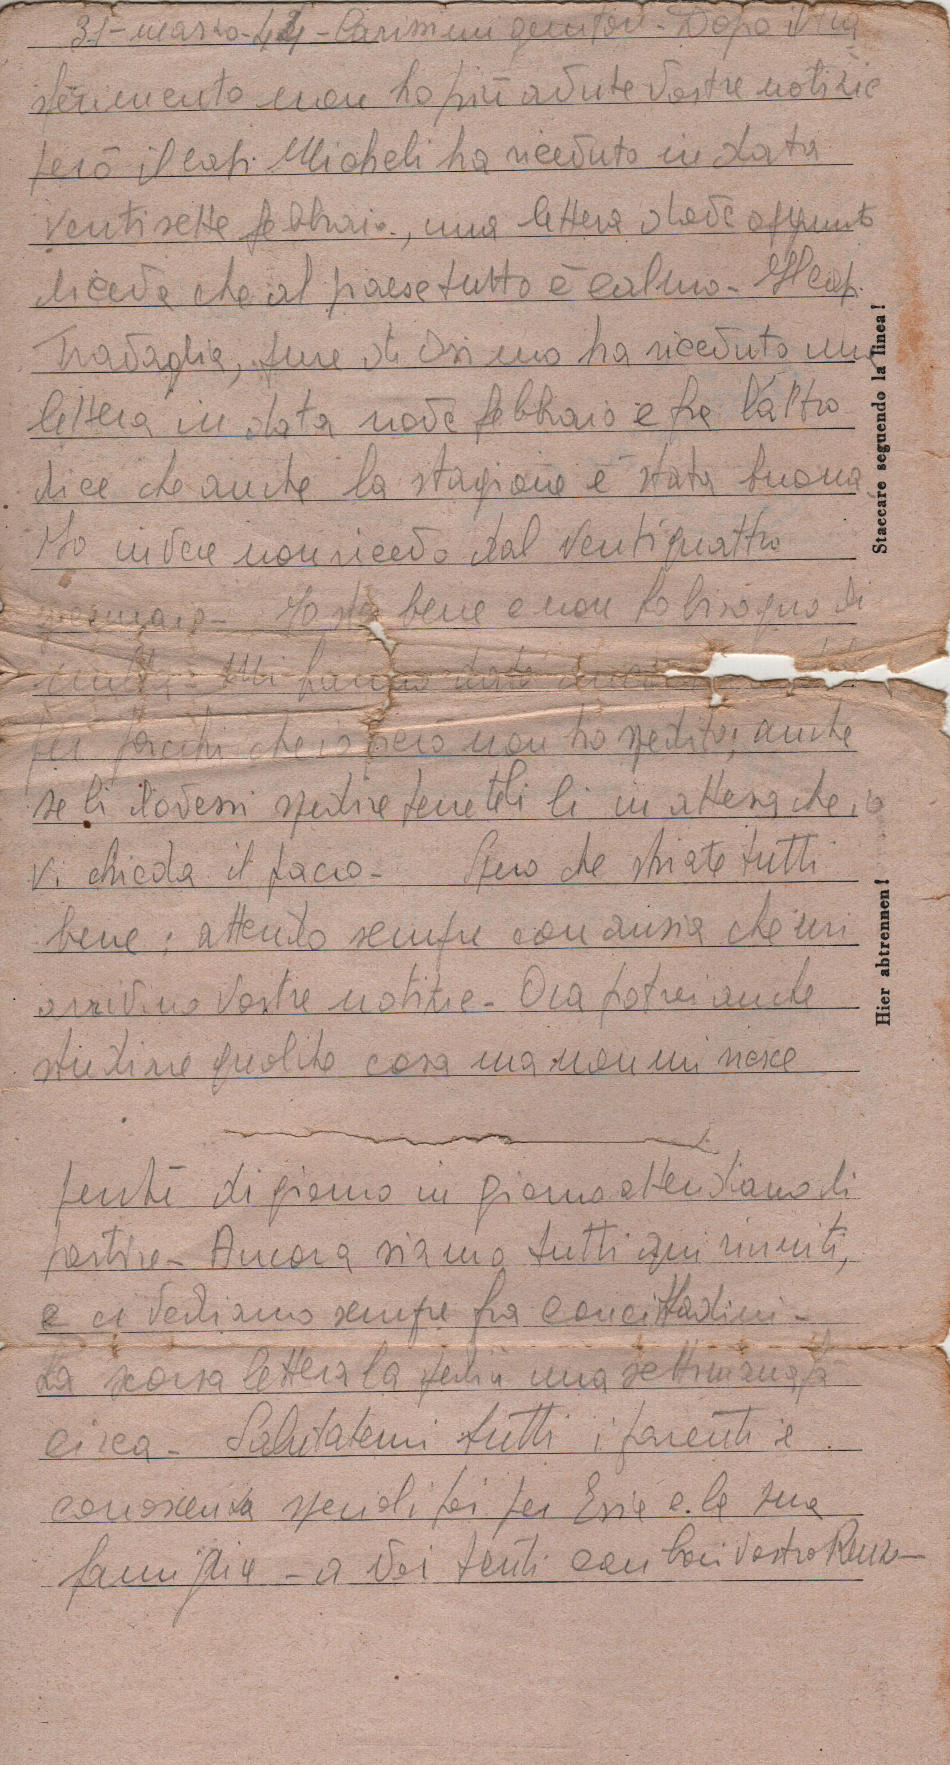 31-marzo-44-Carissimi genitori-Dopo il tra
sferimento non ho più avute vostre notizie
però il cap. Micheli ha ricevuto in data
ventisette febbraio, una lettera dove appunto
diceva che al paese tutto è calmo- Il cap.
Travaglia, pure di Osimo ha ricevuto una
lettera in data nove febbraio e fra l'altro
dice che anche la stagione è stata buona
Io invece non ricevo dal ventiquattro
gennaio- Io sto bene e non ho bisogno di
nulla- Mi hanno dato
per pacchi che io però non ho spedito, anche
se li dovessi spedire teneteli lì in attesa che io
vi chieda il pacco- Spero che stiate tutti
bene; attendo sempre con ansia che mi
arrivino vostre notizie- Ora potrei anche
studiare qualche cosa ma non mi riesce
perchè di giorno in giorno attendiamo di
partire- Ancora siamo tutti qui riuniti,
e ci vediamo sempre fra concittadini-
La scorsa lettera la spedii una settimana fa
circa- Salutatemi tutti i parenti e
conoscenti poi per e la sua
famiglia - a voi tanti cari baci vostro Renzo-
Staccare seguendo la linea!
Hier abtrennen!